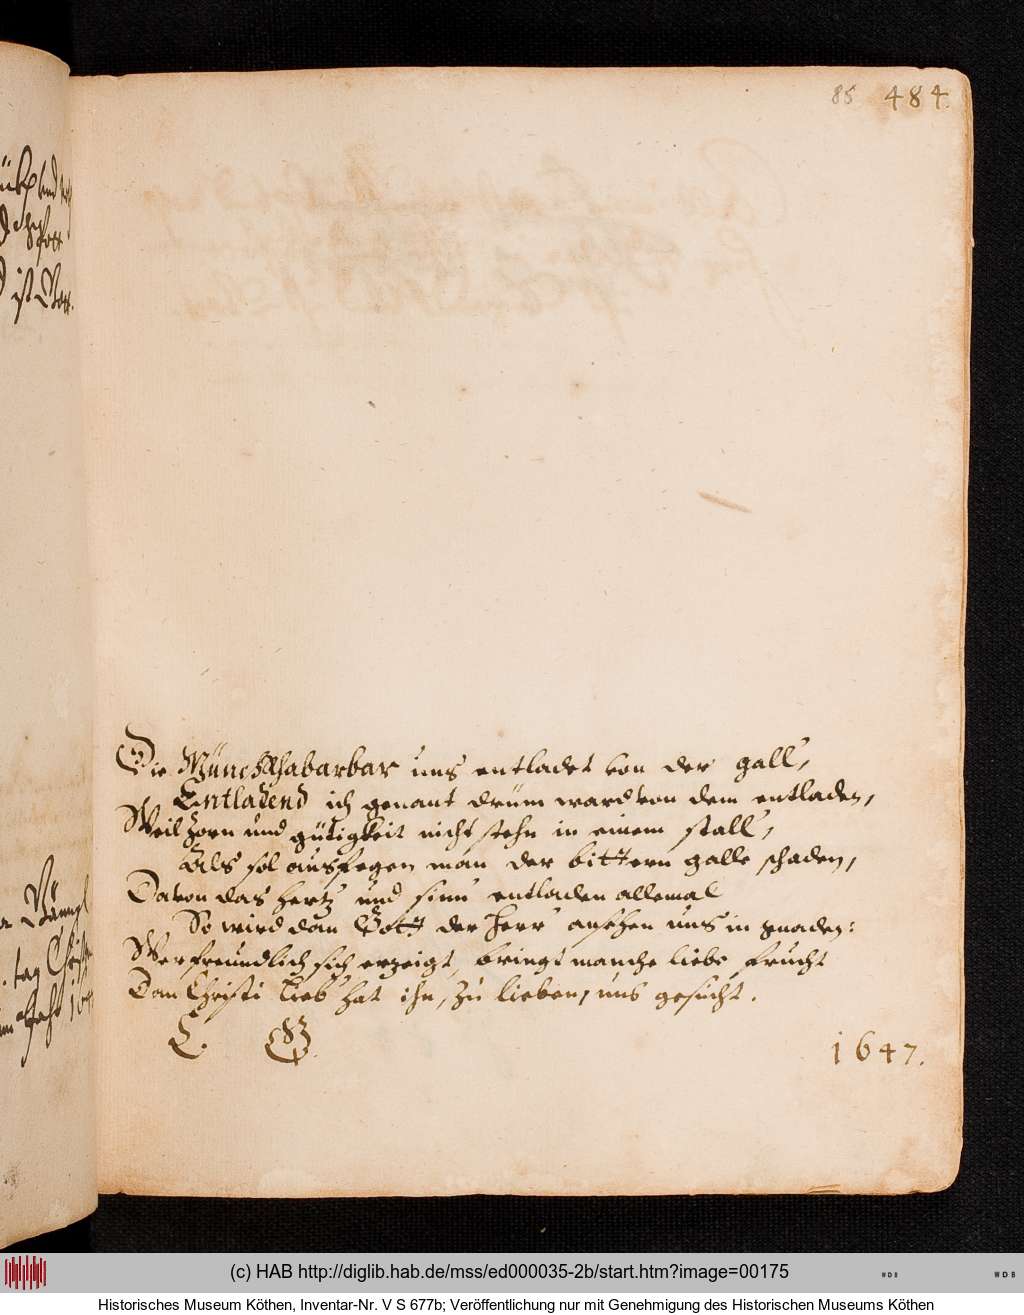 85 484.
Die MünchRhabarbar uns entladet von der gall,
Entladend ich genant drüm ward von dem entladen,
Weil Zorn und gütigkeit nicht stehn in einem stall,
Als sol ausfegen man der bittern galle schaden,
Davon das hertz und sinn entladen allemal
So wird dan Gott der Herr ansehen uns in gnaden:
Wer freundlich sich erzeigt, bringt manche liebe frucht
Dan Christi Lieb hat ihn, zu lieben, uns gesucht.
1647.
ist
tag
(c) HAB http://diglib.hab.de/mss/ed000035-2b/start.htm?image=00175
WDB
WDB
Historisches Museum Köthen, Inventar-Nr. V S 677b; Veröffentlichung nur mit Genehmigung des Historischen Museums Köthen